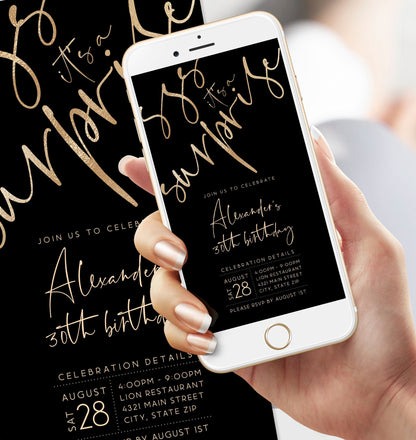 Shhh
it's a
surprise
JOIN US TO CELEBRA
Alexander
30th birthda
CELEBRATION DETAILS
AUGUST
SAT 28
4:00PM - 9:00PM
LION RESTAURANT
4321 MAIN STREET
CITY, STATE ZIP
BY AUGUST 1ST
it's a
surprise
JOIN US TO CELEBRATE
Alexander's
30th birthday
CELEBRATION DETAILS
AUGUST
SAT 28
4:00PM - 9:00PM
LION RESTAURANT
CITY, STATE ZIP
PLEASE RSVP BY AUGUST 1ST